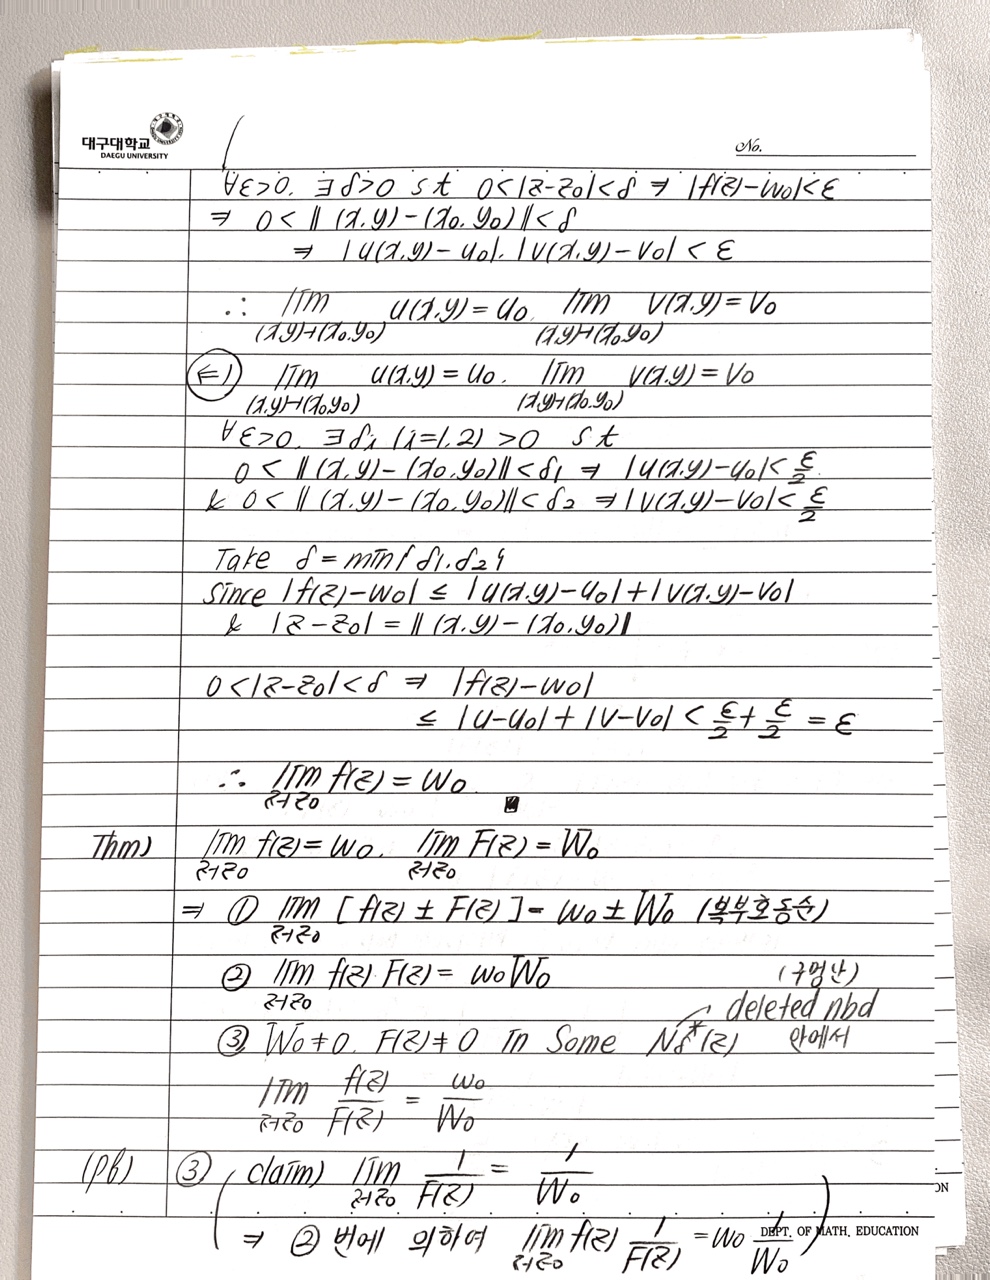 대구대학교
DAEGU UNIVERSITY
No.
∀ε>0. ∃δ>0 s t 0<|z-z₀|<δ ⇒ |f(z)-w₀|<ε
⇒ 0<‖(x.y)-(x₀.y₀)‖<δ
⇒ |u(x.y)-u₀|. |v(x.y)-v₀|<ε
∴ lim u(x.y)=u₀. lim v(x.y)=v₀
(x.y)→(x₀.y₀) (x.y)→(x₀.y₀)
⇐) lim u(x.y)=u₀. lim v(x.y)=v₀
(x.y)→(x₀.y₀) (x.y)→(x₀.y₀)
∀ε>0. ∃δi (i=1,2)>0 s t
0<‖(x.y)-(x₀.y₀)‖<δ₁ ⇒ |u(x.y)-u₀|<ε/2
& 0<‖(x.y)-(x₀.y₀)‖<δ₂ ⇒ |v(x.y)-v₀|<ε/2
Take δ=min{δ₁.δ₂}
Since |f(z)-w₀| ≤ |u(x.y)-u₀|+|v(x.y)-v₀|
& |z-z₀| = ‖(x.y)-(x₀.y₀)‖
0<|z-z₀|<δ ⇒ |f(z)-w₀|
≤ |u-u₀|+|v-v₀| < ε/2+ε/2 = ε
∴ lim f(z)=w₀.
z→z₀
Thm) lim f(z)=w₀. lim F(z)=W₀
z→z₀ z→z₀
⇒ ① lim [f(z)±F(z)]=w₀±W₀ (복부호동순)
z→z₀
② lim f(z)F(z)=w₀W₀ (구멍난)
z→z₀ deleted nbd
③ W₀≠0. F(z)≠0 in some Nδ*(z) 안에서
lim f(z)/F(z) = w₀/W₀
z→z₀
(pf) ③ (claim) lim 1/F(z) = 1/W₀
z→z₀
ON
⇒ ②번에 의하여 lim f(z) 1/F(z) = w₀ 1/W₀)
z→z₀
DEPT. OF MATH. EDUCATION